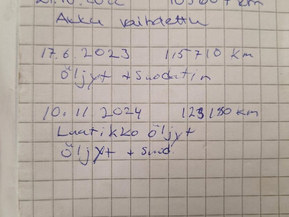 Akku vaihdettu
17.6 2023 115710 km
Öljyt + suodatin
10.11 2024 123180 km
Luatikko öljyt
Öljyt + suod